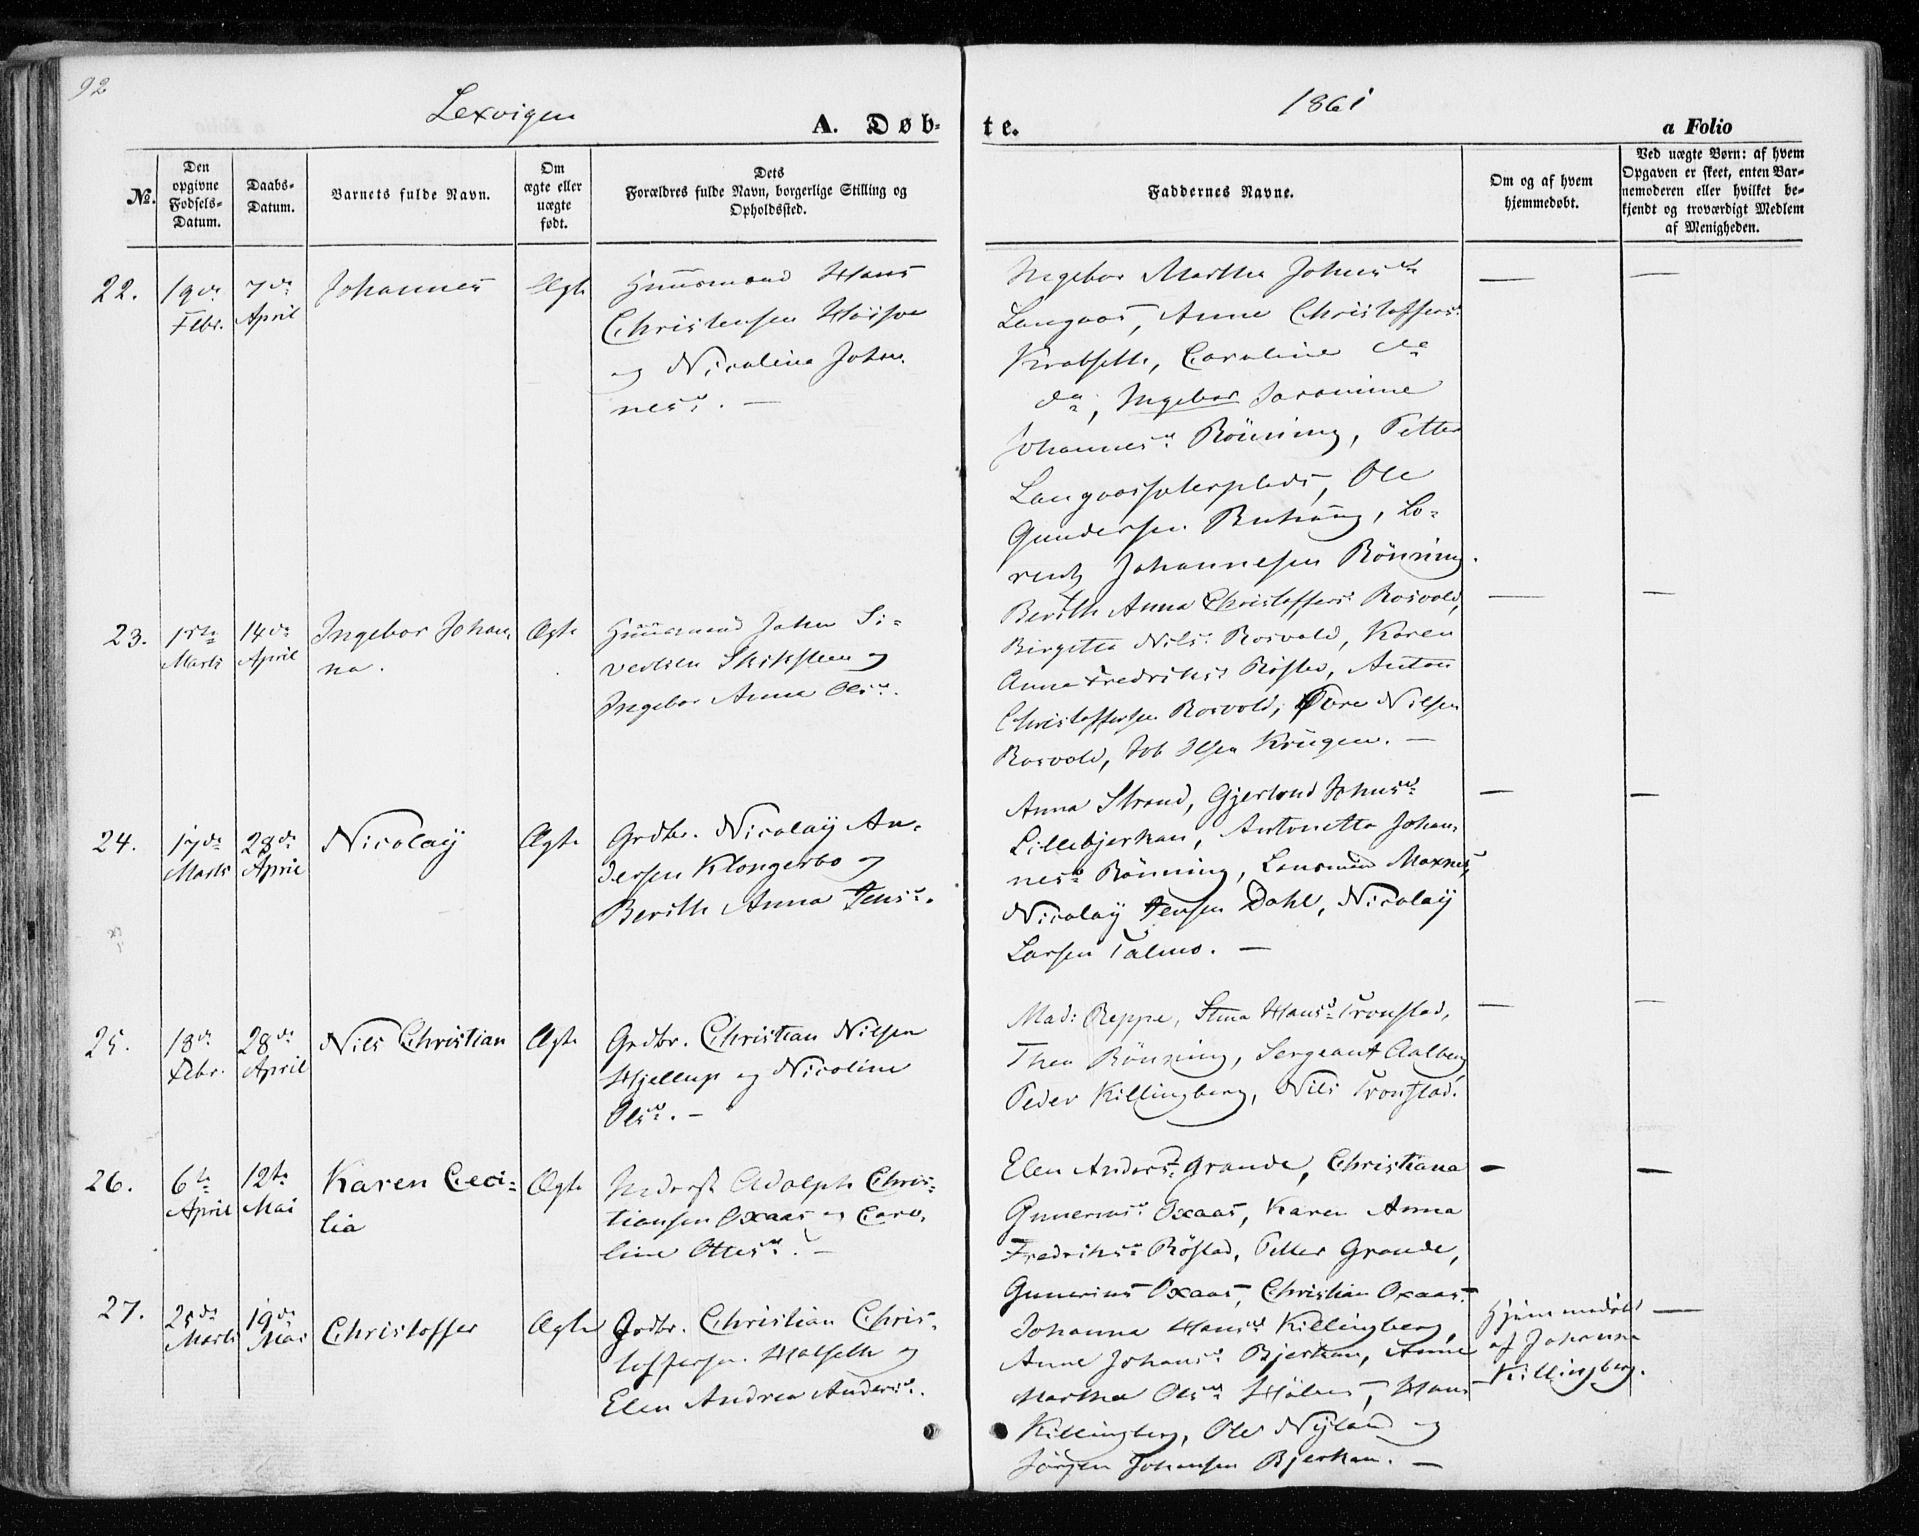 92
Lexvigen
A. Døb-
te.
1861
a Folio
No.
Den opgivne Fødsels-Datum.
Daabs-Datum.
Barnets fulde Navn.
Om ægte eller uægte født.
Dets Forældres fulde Navn, borgerlige Stilling og Opholdssted.
Faddernes Navne.
Om og af hvem hjemmedøbt.
Ved uægte Børn: af hvem Opgaven er skeet, enten Barnemoderen eller hvilket bekjendt og troværdigt Medlem af Menigheden.
22.
19de Febr.
7de April
Johannes
Ægte
Huusmand Hans
Christensen
og Nicolina Johan-
nesd. —
Ingebor Martha Johnsd.
Langaas, Anne Christoffersd.
Krabseth, Caroline do
do, Ingebor
Johannesd. Rönning, Petter
Ole
Gundersen Buhaug, Lo-
rentz Johannesen Rönning.
—
—
23.
1ste Marts
14de April
Ingebor Johan-
na.
Ægte
Huusmand John Si-
vertsen og
Ingebor Anna Olsd.
Berith Anna Christoffersd. Rosvold,
Birgitta Nilsd. Rosvold, Karen
Anna Fredriksd. Röstad, Anton
Christoffersen Rosvold, Tore Nilsen
Rosvold, Krugen. —
—
—
24.
17de Marts
28de April
Nicolaÿ
Ægte
Grdbr. Nicolaÿ An-
dersen Klongerbo og
Berith Anna Jensd.
Anna Strand, Gjertrud Johnsd.
Lillebjerkan, Antonetta Johan-
nesd. Rönning, Lensmand Moxnes,
Nicolaÿ Jensen Dahl, Nicolaÿ
Larsen Talmo. —
—
—
25.
18de Febr.
28de April
Nils Christian
Ægte
Grdbr. Christian Nilsen
Hjellup og Nicoline
Olsd. —
Mad: Reppe, Stina Hansd. Tronstad,
Thea Rönning, Sergeant Aalberg,
Peder Killingberg, Nils Tronstad.
—
—
26.
6te April
12te Mai
Karen Ceci-
lia
Ægte
Inderst Adolph Chris-
tiansen Oxaas og Caro-
line Ottesd. —
Elen Andersd. Grande, Christiana
Gunneriusd. Oxaas, Karen Anna
Fredriksd. Röstad, Petter Grande,
Gunerius Oxaas, Christian Oxaas.
—
—
27.
25de Marts
19de Mai
Christoffer
Ægte
Grdbr. Christian Chris-
toffersen Halseth og
Elen Andrea Andersd.
Johanna Hansd. Killingberg,
Anne Johansd. Bjerkan, Anne
Martha Olsd. Hans
Killingberg, Ole Nyland og
Jörgen Johansen Bjerkan. —
Hjemmedøbt
af Johanna
Killingberg.
—